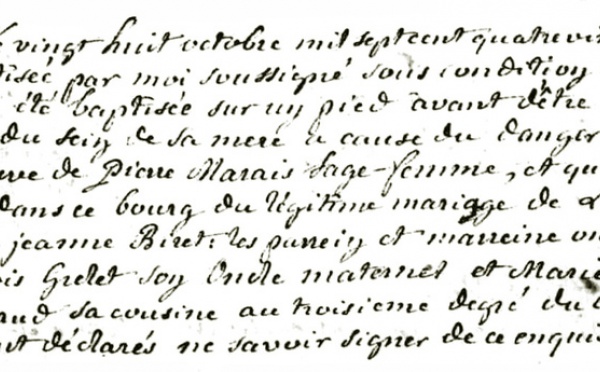 vingt huit octobre mil sept cent quatre vi
tisée par moi soussigné sous condition
été baptisée sur un pied avant d'être
du sein de sa mere a cause du danger
uve de pierre Marais sage-femme, et qu
dans ce bourg du légitime mariage de
jeanne Biret: les parrein et marreine on
ois Grelet son Oncle maternel et Marie
aud sa cousine au troisieme degré du
nt déclarés ne savoir signer de ce enquis